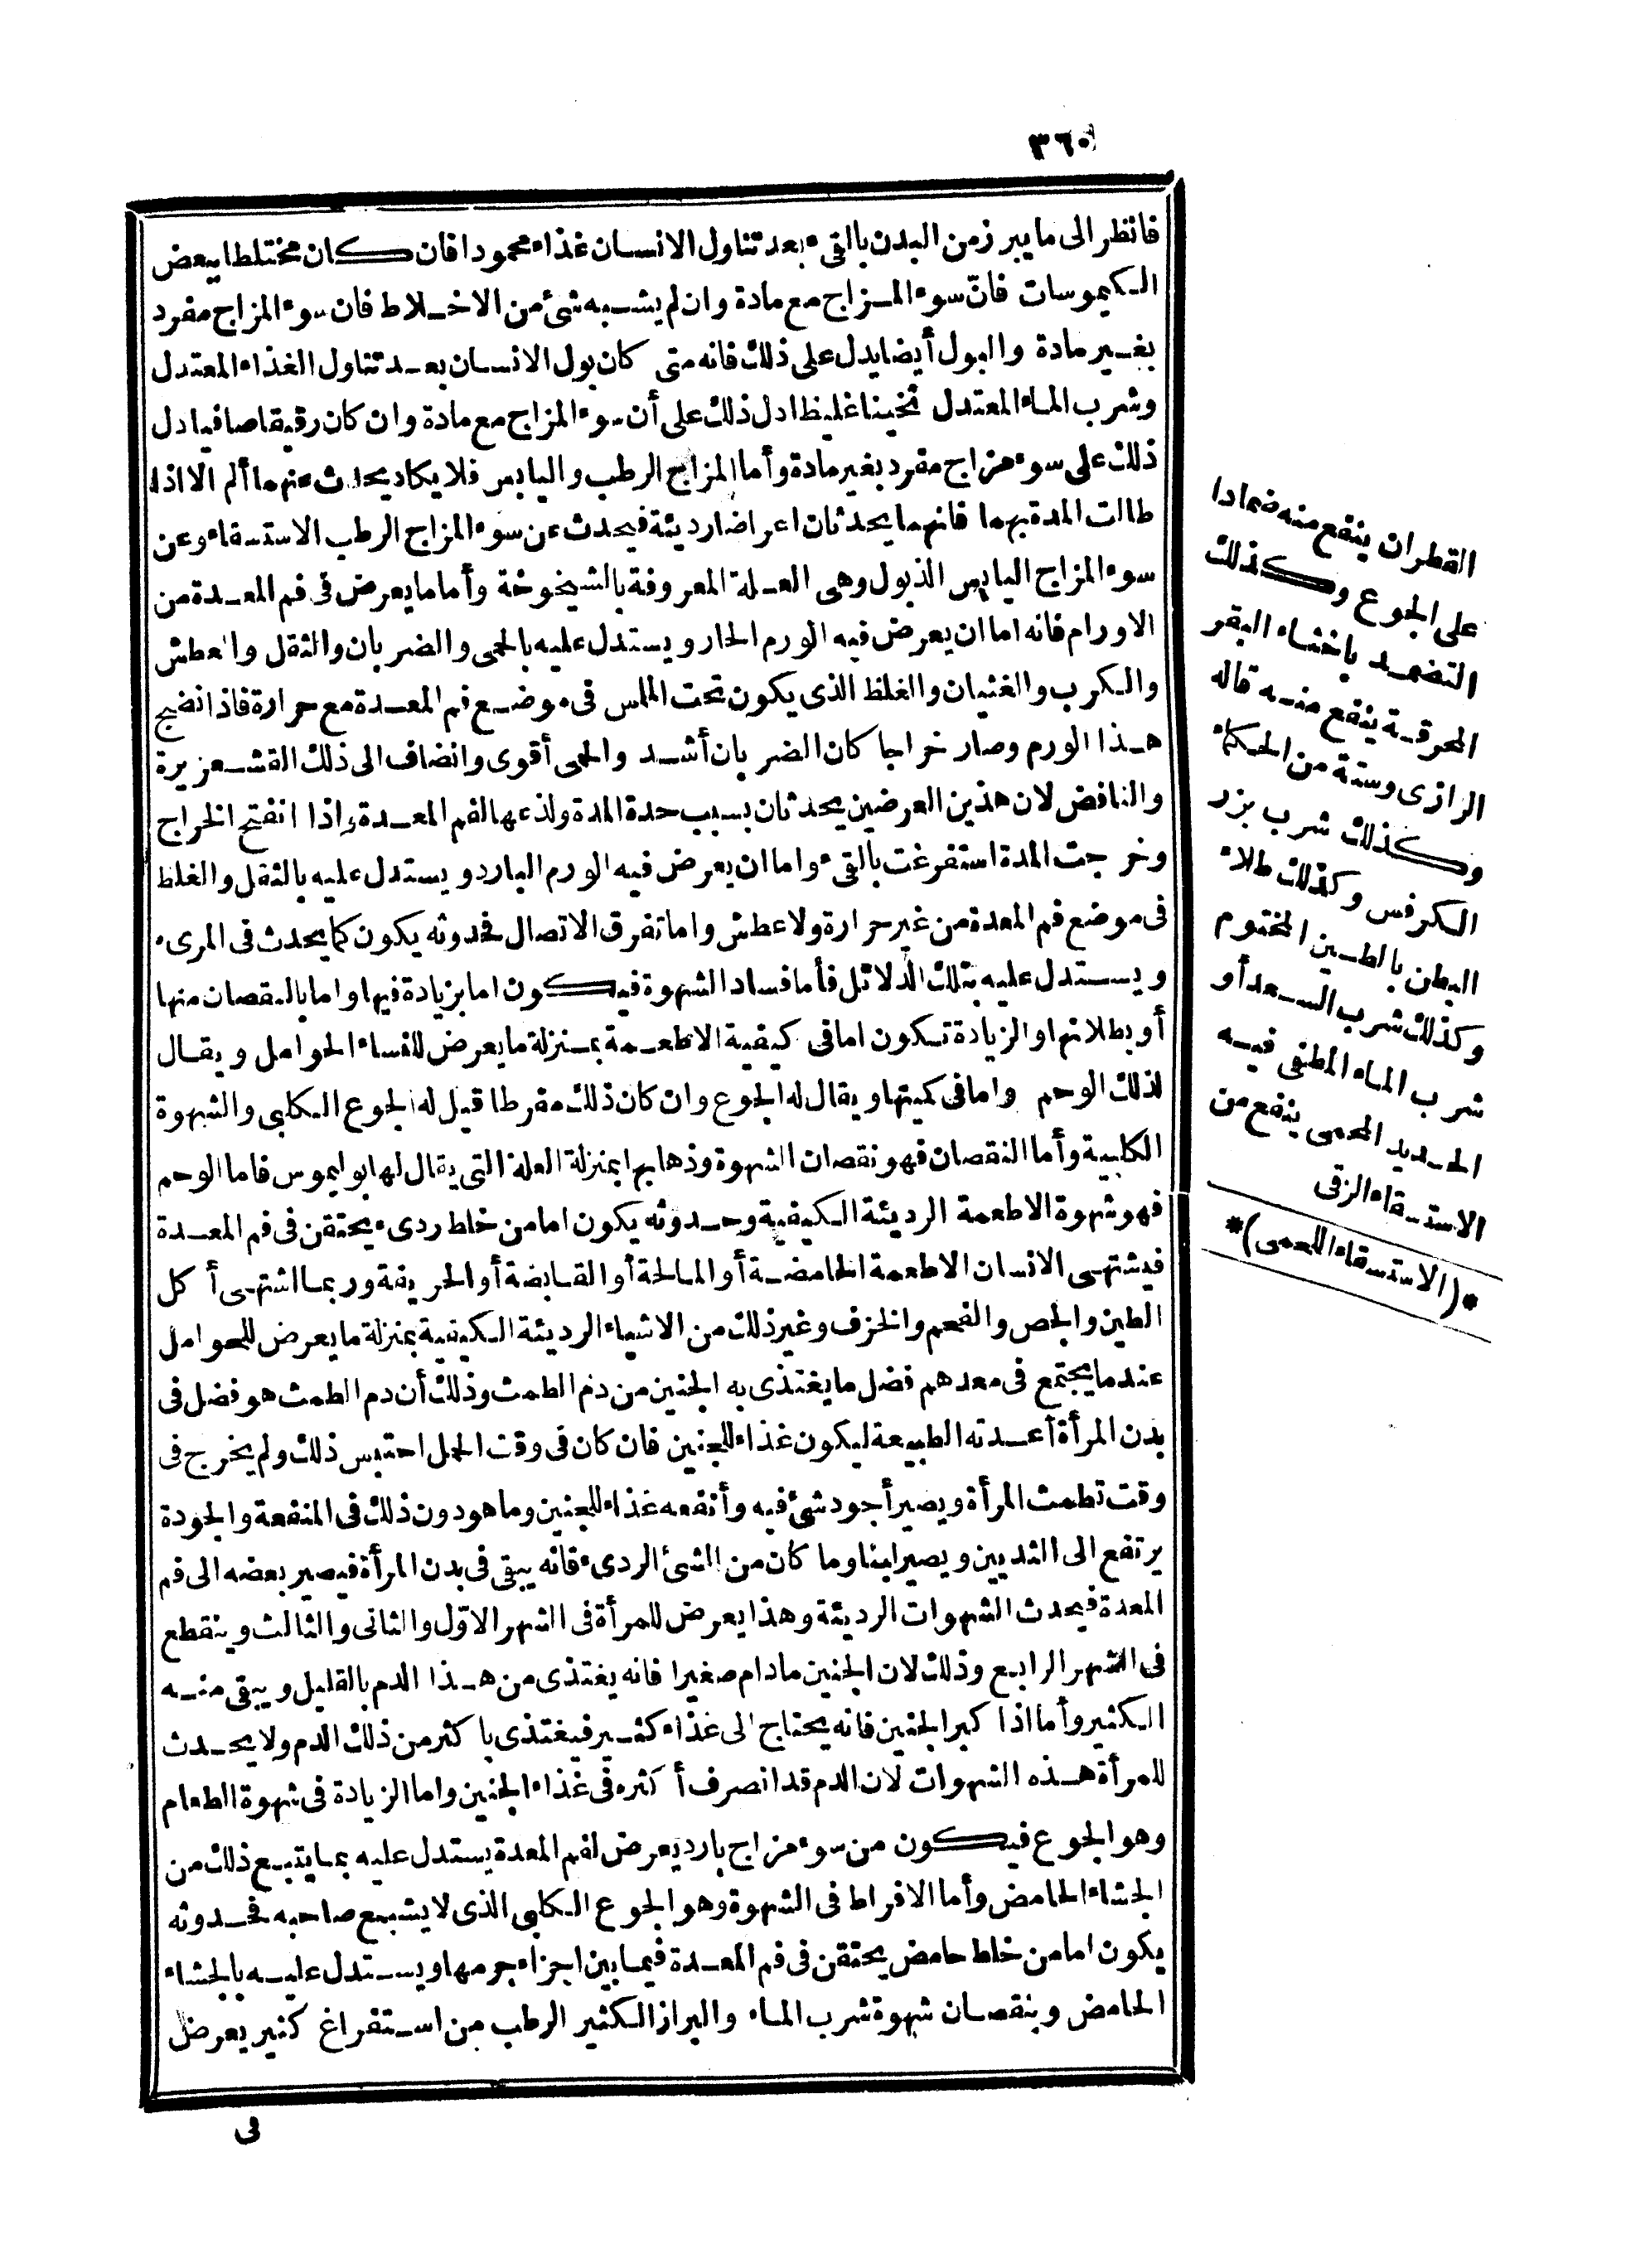 ٣٦٠
فانظر الى ما يبرز من البدن بالقيء بعد تناول الانسان غذاء محمودا فان كان مختلطا ببعض
الكيموسات فانّ سوء المزاج مع مادة وان لم يشبه شئ من الاخلاط فان سوء المزاج مفرد
بغير مادة والبول أيضا يدل على ذلك فانه متى كان بول الانسان بعد تناول الغذاء المعتدل
وشرب الماء المعتدل ثخينا غليظا دل ذلك على أن سوء المزاج مع مادة وان كان رقيقا صافيا دل
ذلك على سوء مزاج مفرد بغير مادة وأما المزاج الرطب واليابس فلا يكاد يحدث عنهما ألم الا اذا
طالت المدة بهما فانهما يحدثان اعراضا رديئة فيحدث عن سوء المزاج الرطب الاستسقاء وعن
سوء المزاج اليابس الذبول وهى العلة المعروفة بالشيخوخة وأما ما يعرض فى فم المعدة من
الاورام فانه اما ان يعرض فيه الورم الحار ويستدل عليه بالحمى والضربان والثقل والعطش
والكرب والغثيان والغلظ الذى يكون تحت الملس فى موضع فم المعدة مع حرارة فاذا نضج
هذا الورم وصار خراجا كان الضربان أشد والحمى أقوى وانضاف الى ذلك القشعريرة
والنافض لان هذين العرضين يحدثان بسبب حدة المدة ولذعها لفم المعدة واذا انفتح الخراج
وخرجت المدة استفرغت بالقيء واما ان يعرض فيه الورم البارد ويستدل عليه بالثقل والغلظ
فى موضع فم المعدة من غير حرارة ولا عطش واما تفرق الاتصال فحدوثه يكون كما يحدث فى المرىء
ويستدل عليه بتلك الدلائل فأما فساد الشهوة فيكون اما بزيادة فيها واما بالنقصان منها
أو بطلانها والزيادة تكون اما فى كيفية الاطعمة بمنزلة ما يعرض للنساء الحوامل ويقال
لذلك الوحم واما فى كميتها ويقال له الجوع وان كان ذلك مفرطا قيل له الجوع الكلبى والشهوة
الكلبية وأما النقصان فهو نقصان الشهوة وذهابها بمنزلة العلة التى يقال لها بوليموس فاما الوحم
فهو شهوة الاطعمة الرديئة الكيفية وحدوثه يكون اما من خلط ردىء يحتقن فى فم المعدة
فيشتهى الانسان الاطعمة الحامضة أو المالحة أو القابضة أو الحريفة وربما اشتهى أكل
الطين والجص والفحم والخزف وغير ذلك من الاشياء الرديئة الكيفية بمنزلة ما يعرض للحوامل
عندما يجتمع فى معدهم فضل ما يغتذى به الجنين من دم الطمث وذلك أن دم الطمث هو فضل فى
بدن المرأة أعدته الطبيعة ليكون غذاء للجنين فان كان فى وقت الحمل احتبس ذلك ولم يخرج فى
وقت تطمث المرأة ويصير أجود شئ فيه وأنفعه غذاء للجنين وما هو دون ذلك فى المنفعة والجودة
يرتفع الى الثديين ويصير لبنا وما كان من الشئ الردىء فانه يبقى فى بدن المرأة فيصير بعضه الى فم
المعدة فيحدث الشهوات الرديئة وهذا يعرض للمرأة فى الشهر الاوّل والثانى والثالث وينقطع
فى الشهر الرابع وذلك لان الجنين مادام صغيرا فانه يغتذى من هذا الدم بالقليل ويبقى منه
الكثير وأما اذا كبر الجنين فانه يحتاج الى غذاء كثير فيغتذى باكثر من ذلك الدم ولا يحدث
للمرأة هذه الشهوات لان الدم قد انصرف أكثره فى غذاء الجنين واما الزيادة فى شهوة الطعام
وهو الجوع فيكون من سوء مزاج بارد يعرض لفم المعدة يستدل عليه بما يتبع ذلك من
الجشاء الحامض وأما الافراط فى الشهوة وهو الجوع الكلبى الذى لا يشبع صاحبه فحدوثه
يكون اما من خلط حامض يحتقن فى فم المعدة فيما بين اجزاء جرمها ويستدل عليه بالجشاء
الحامض وبنقصان شهوة شرب الماء والبراز الكثير الرطب من استفراغ كثير يعرض
فى
القطران ينفع منه ضمادا
على الجوع وكذلك
التضمد باخثاء البقر
المحرقة ينفع منه قاله
الرازى وستة من الحكماء
وكذلك شرب بزر
الكرفس وكذلك طلاء
البطن بالطين المختوم
وكذلك شرب السعد أو
شرب الماء المطفى فيه
الحديد المحمى ينفع من
الاستسقاء الزقى
*(الاستسقاء اللحمى)*